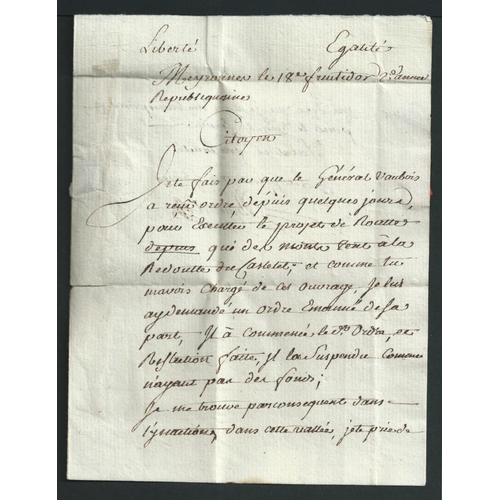 Liberté Egalité
Meyronnes le 18e fructidor 2e année
Republiquaine
Citoyen
Je te fais par que le Général Vaubois
a reçu ordre depuis quelques jours,
pour Executer le projet de Routte
depuis que des monts vont à la
Redoutte de Castelet, et comme tu
mavois Chargé de ces ouvrage, Je lui
ay demandé un ordre Emané de sa
part, Il à commencé le dto Ordre, et
Reflection faite, il la Suspendre Comme
n'ayant pas des fonds;
Je me trouve par consequent dans
l'ynaction, dans cette vallée, je te prie de